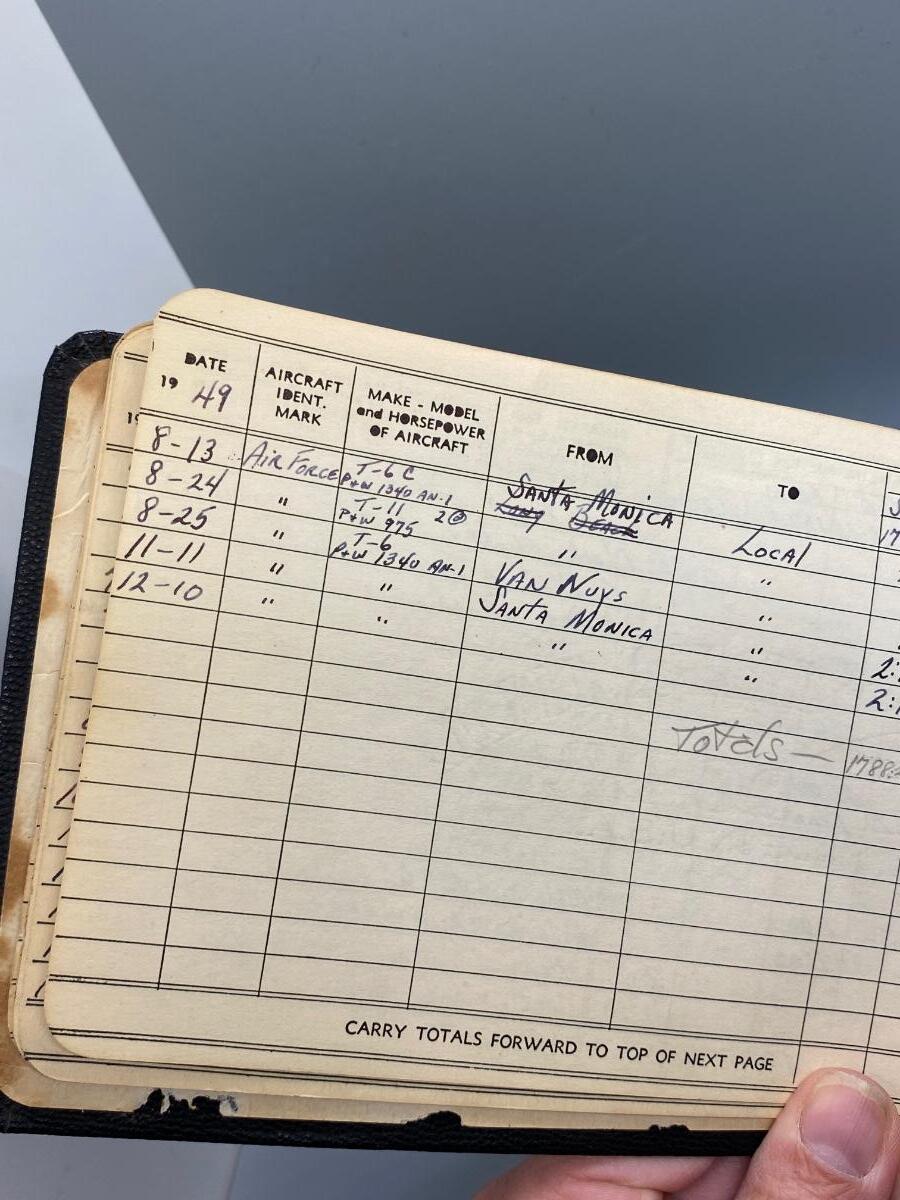 DATE
19 49
AIRCRAFT
IDENT.
MARK
MAKE - MODEL
and HORSEPOWER
OF AIRCRAFT
FROM
TO
8-13 Air Force T-6 C
P+W 1340 AN-1 Santa Monica Local
8-24 " T-11
P+W 975 Long Beach " "
8-25 " T-6
P+W 1340 AN-1 Van Nuys "
11-11 " " Santa Monica " 2:
12-10 " " " " 2:
Totals — 1788:
CARRY TOTALS FORWARD TO TOP OF NEXT PAGE